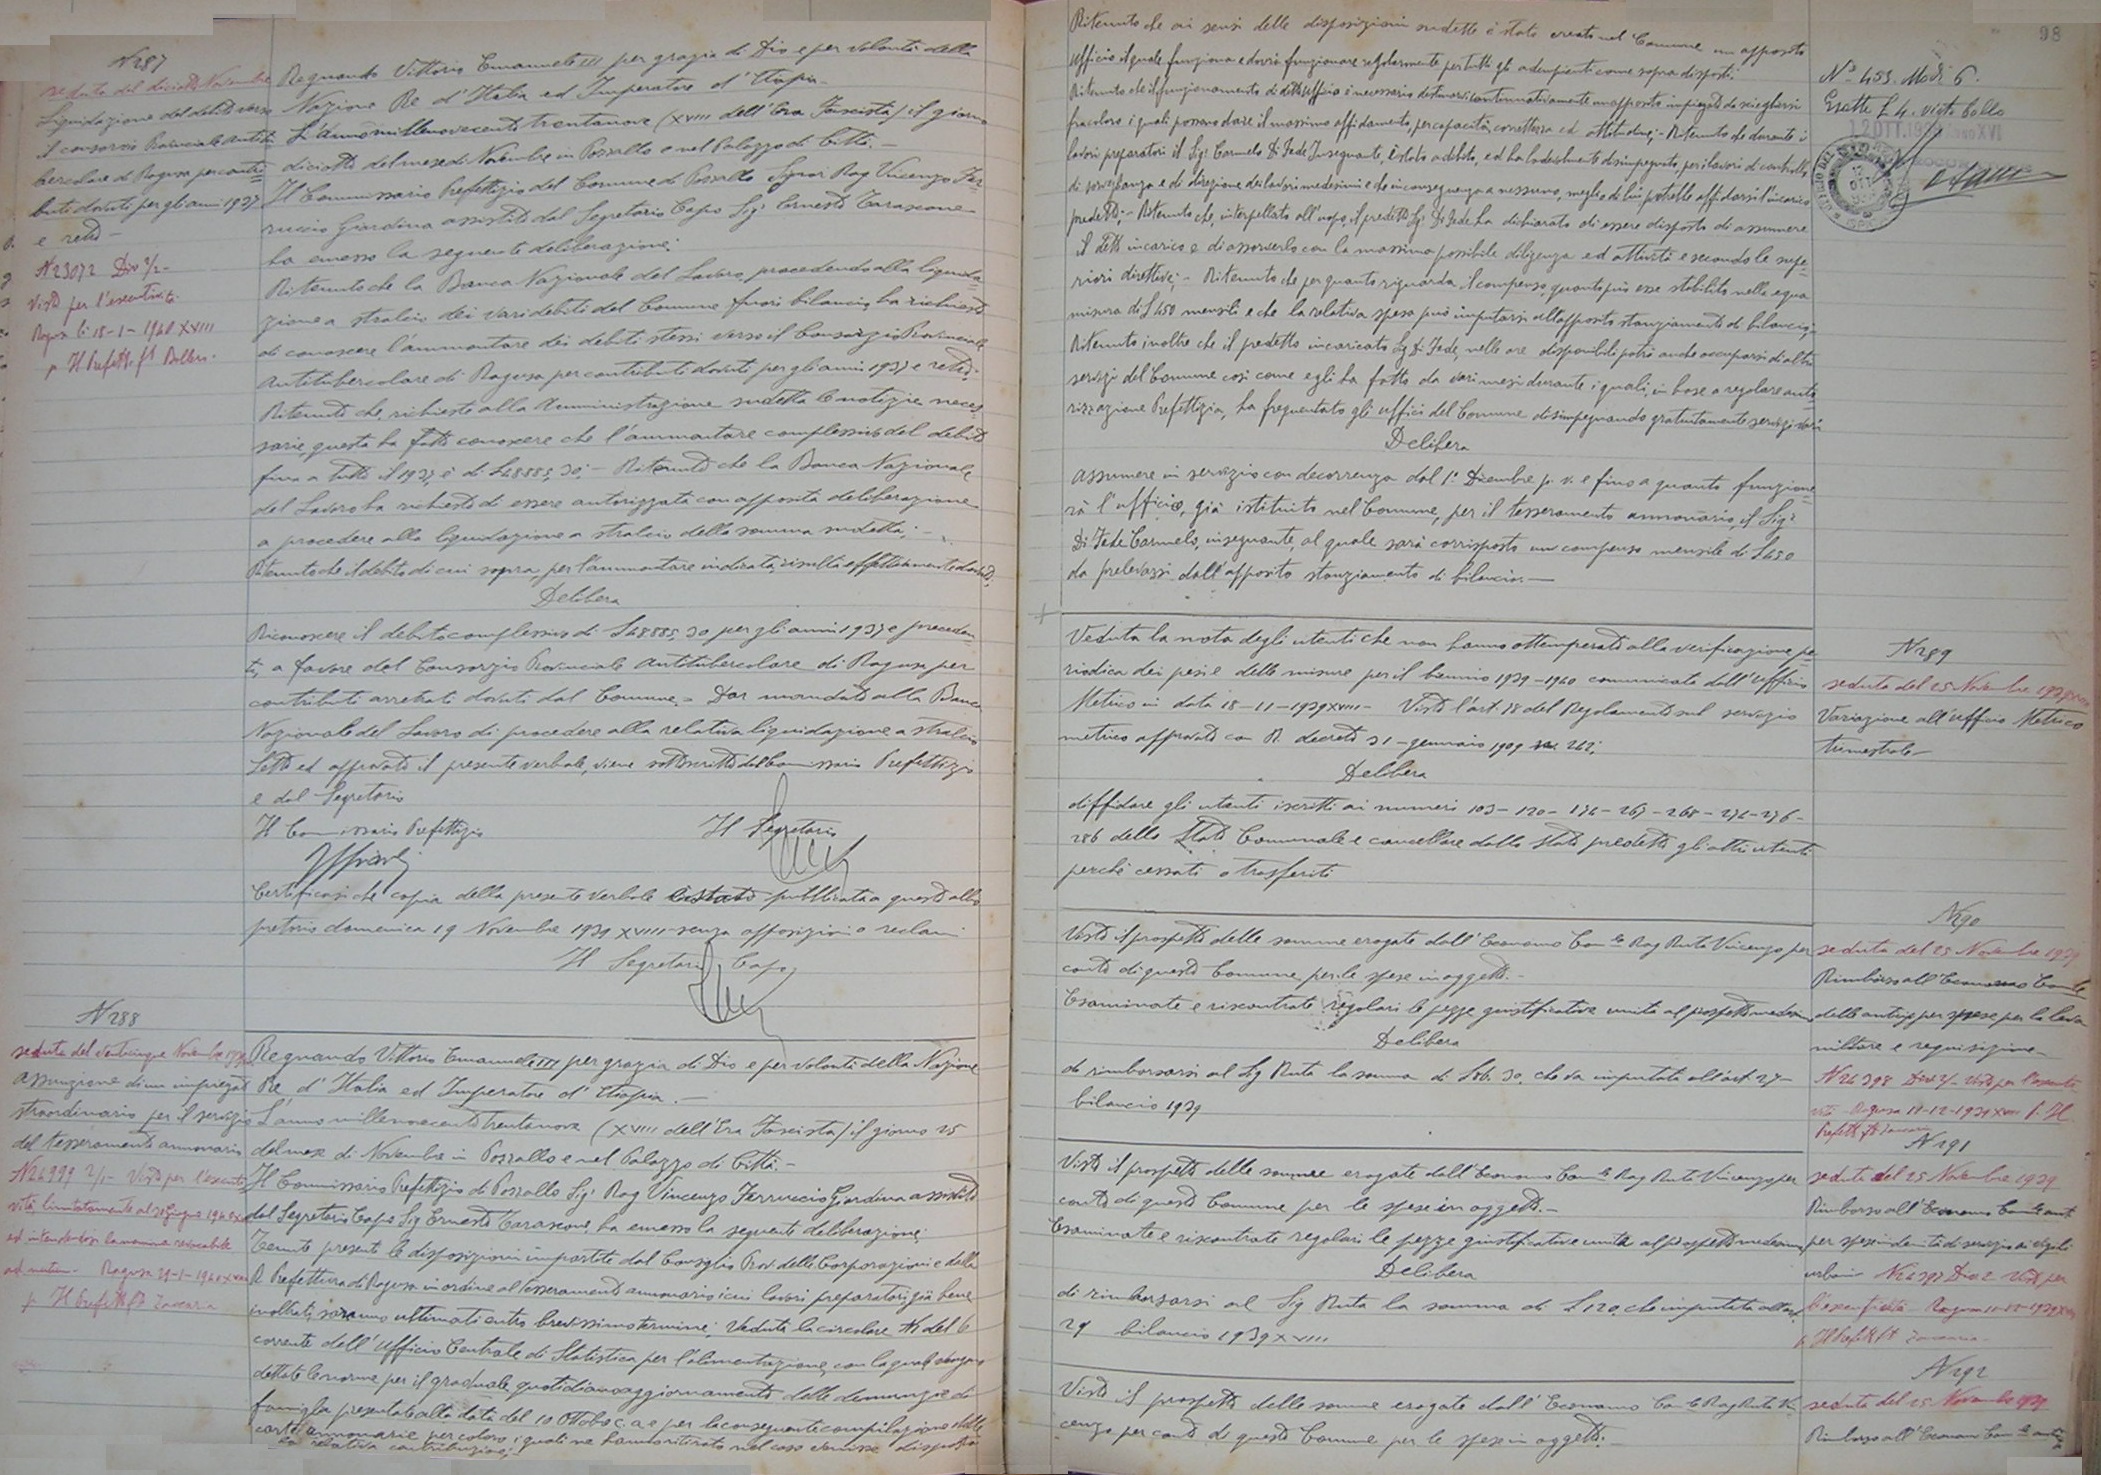 N 287
seduta del diciotto Novembre
Liquidazione del debito verso
il consorzio Provinciale Antitu
bercolare di Ragusa per contri=
buti dovuti per gli anni 1937
e retro –
N 23072 Div 2/2 –
Visto per l'esecutività
Ragusa li 18-1-1940 XVIII
p Il Prefetto ft
Regnando Vittorio Emanuele III per grazia di Dio e per volontà della
Nazione Re d'Italia ed Imperatore d'Etiopia –
L'anno millenovecento trentanove (XVIII dell'Era Fascista) il giorno
diciotto del mese di Novembre in Pozzallo e nel Palazzo di Città. –
Il Commissario Prefettizio del Comune di Pozzallo Signor Rag Vincenzo Fer
ruccio Giardina assistito dal Segretario Capo Sig: Ernesto Tarascone
ha emesso la seguente deliberazione:
Ritenuto che la Banca Nazionale del Lavoro, procedendo alla liquida-
zione a stralcio dei vari debiti del Comune fuori bilancio, ha richiesto
di conoscere l'ammontare dei debiti stessi verso il Consorzio Provinciale
Antitubercolare di Ragusa per contributi dovuti per gli anni 1937 e retro;
Ritenuto che, richieste alla Amministrazione sudetta le notizie neces
sarie, questa ha fatto conoscere che l'ammontare complessivo del debito
fino a tutto il 1937 è di L 48885,30; – Ritenuto che la Banca Nazionale
del Lavoro ha richiesto di essere autorizzata con apposita deliberazione
a procedere alla liquidazione a stralcio della somma sudetta; –
Ritenuto che il debito di cui sopra per l'ammontare indicato, risulta effettivamente dovuto;
Delibera
Riconoscere il debito complessivo di L 48885,30 per gli anni 1937 e preceden
ti, a favore del Consorzio Provinciale Antitubercolare di Ragusa per
contributi arretrati dovuti dal Comune. – Dar mandato alla Banca
Nazionale del Lavoro di procedere alla relativa liquidazione a stralcio
Letto ed approvato il presente verbale, viene sottoscritto dal Commissario Prefettizio
e dal Segretario
Il Commissario Prefettizio Il Segretario
Certificasi che copia della presente verbale è stata pubblicata a questo albo
pretorio domenica 19 Novembre 1939 XVIII senza opposizioni o reclami
Il Segretario Capo
N 288
seduta del venticinque Novembre 1939
Assunzione di un impiegato
straordinario per il servizio
del tesseramento annonario
N 24999 2/1 – Visto per l'esecuti
vità limitatamente al 30 Giugno 1940
ed intendendosi la nomina revocabile
ad nutum. Ragusa 29-1-1940 XVIII
p Il Prefetto ft Zaccaria
Regnando Vittorio Emanuele III per grazia di Dio e per volontà della Nazione
Re d'Italia ed Imperatore d'Etiopia. –
L'anno millenovecento trentanove (XVIII dell'Era Fascista) il giorno 25
del mese di Novembre in Pozzallo e nel Palazzo di Città. –
Il Commissario Prefettizio di Pozzallo Sig: Rag Vincenzo Ferruccio Giardina assistito
dal Segretario Capo Sig Ernesto Tarascone, ha emesso la seguente deliberazione:
Tenute presenti le disposizioni impartite dal Consiglio Prov. delle Corporazioni e dalla
R Prefettura di Ragusa in ordine al tesseramento annonario i cui lavori preparatori, già bene
inoltrati, saranno ultimati entro brevissimo termine; Veduta la circolare del 6
corrente dell'Ufficio Centrale di Statistica per l'alimentazione, con la quale vengono
dettate le norme per il graduale quotidiano aggiornamento delle denunzie di
famiglia presentate alla data del 10 Ottobre c.a. e per la conseguente compilazione delle
carte annonarie per coloro i quali ne hanno ritirato nel caso venisse disposta
la relativa contribuzione;
98
Ritenuto che ai sensi delle disposizioni sudette è stato creato nel Comune un apposito
ufficio il quale funziona e dovrà funzionare regolarmente per tutti gli adempienti come sopra disposti.
Ritenuto che il funzionamento di detto ufficio è necessario destinarvi continuativamente un apposito impiegato da scegliersi
fra coloro i quali possono dare il massimo affidamento, per capacità, correttezza ed attitudine; – Ritenuto che durante i
lavori preparatori il Sig: Carmelo Di Fede Insegnante, è stato adibito, ed ha lodevolmente disimpegnato, per i lavori di controllo
di sorveglianza e di direzione dei lavori medesimi e che in conseguenza a nessuno, meglio di lui potrebbe affidarsi l'incarico
predetto; – Ritenuto che, interpellato all'uopo, il predetto Sig: Di Fede ha dichiarato di essere disposto di assumere
il detto incarico e di assolverlo con la massima possibile diligenza ed attività e secondo le supe-
riori direttive; – Ritenuto che per quanto riguarda il compenso, quanto può esse stabilito nella equa
misura di L 450 mensili e che la relativa spesa può imputarsi all'apposito stanziamento di bilancio;
Ritenuto inoltre che il predetto incaricato Sig Di Fede, nelle ore disponibili potrà anche occuparsi di altri
servizi del Comune così come egli ha fatto da vari mesi durante i quali, in base a regolare auto
rizzazione Prefettizia, ha frequentato gli uffici del Comune disimpegnando gratuitamente servizi vari
Delibera
assumere in servizio con decorrenza dal 1º Dicembre p. v. e fino a quanto funzione
rà l'ufficio, già istituito nel Comune, per il tesseramento annonario, il Sig:
Di Fede Carmelo, insegnante, al quale sarà corrisposto un compenso mensile di L 450
da prelevarsi dall'apposito stanziamento di bilancio. –
Nº 455. Mod. 6.
Esatte L 4. visto bollo
12 OTT. 1939 Anno XVI
N 289
seduta del 25 Novembre 1939 XVIII
Variazione all'ufficio Metrico
trimestrale –
Veduta la nota degli utenti che non hanno ottemperato alla verificazione pe-
riodica dei pesi e delle misure per il biennio 1939-1940 comunicata dall'Ufficio
Metrico in data 18-11-1939 XVIII – Visto l'art. 78 del Regolamento sul servizio
metrico approvato con R. decreto 31-gennaio 1909 242;
Delibera
diffidare gli utenti iscritti ai numeri 103-120-174-267-268-274-276-
286 dello Stato Comunale e cancellare dallo stato predetto gli altri utenti
perché cessati o trasferiti
N 290
seduta del 25 Novembre 1939
Rimborso all'Economo Com.le
delle anticip. per spese per la leva
militare e requisizione –
N 24398 Div 2/– Visto per l'esecuti
vità – Ragusa 11-12-1939 XVIII p. Il
Prefetto ft Zaccaria
Visto il prospetto delle somme erogate dall'Economo Com.le Rag Ruta Vincenzo per
conto di questo Comune per le spese in oggetto. –
Esaminate e riscontrate regolari le pezze giustificative unite al prospetto medesimo
Delibera
di rimborsarsi al Sig Ruta la somma di L 36.30, che va imputata all'art. 27 –
bilancio 1939
N 291
seduta del 25 Novembre 1939
Rimborso all'Economo Com.le ant.
per spese indennità di servizio ai vigili
urbani – N 24397 Div 2 Visto per
l'esecutività – Ragusa 11-12-1939 XVIII
p Il Prefetto ft Zaccaria –
Visto il prospetto delle somme erogate dall'Economo Com.le Rag Ruta Vincenzo per
conto di questo Comune per le spese in oggetto. –
Esaminate e riscontrate regolari le pezze giustificative unite al prospetto medesimo
Delibera
di rimborsarsi al Sig Ruta la somma di L 120, che imputata all'art.
29 bilancio 1939 XVIII
N 292
seduta del 25 Novembre 1939
Rimborso all'Economo Com.le antic
Visto il prospetto delle somme erogate dall'Economo Com.le Rag Ruta Vi
cenzo per conto di questo Comune per le spese in oggetto: –